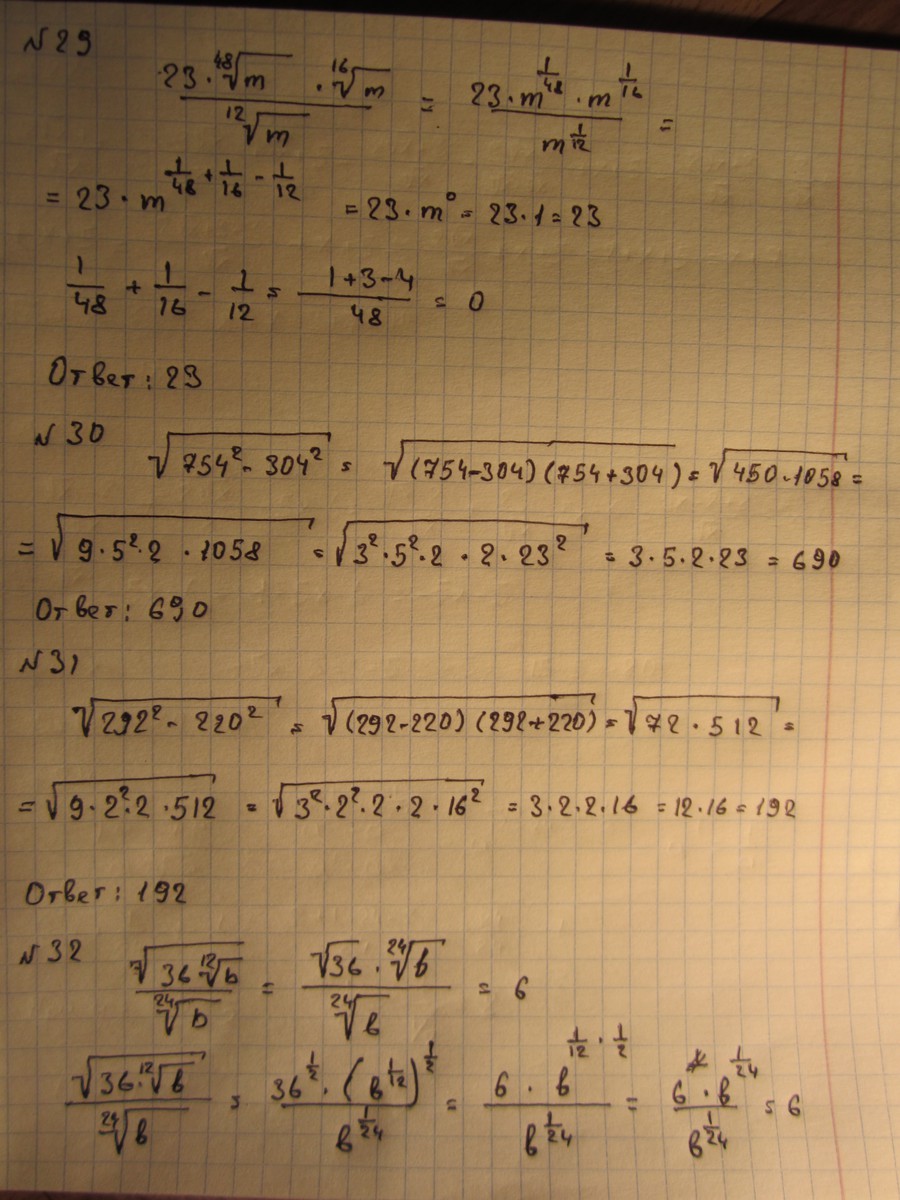 №29
(23 · ⁴⁸√m · ¹⁶√m) / ¹²√m = (23 · m^(1/48) · m^(1/16)) / m^(1/12) =
= 23 · m^(1/48 + 1/16 - 1/12) = 23 · m⁰ = 23 · 1 = 23
1/48 + 1/16 - 1/12 = (1+3-4)/48 = 0
Ответ: 23
№30
√(754² - 304²) = √((754-304)(754+304)) = √(450 · 1058) =
= √(9 · 5² · 2 · 1058) = √(3² · 5² · 2 · 2 · 23²) = 3 · 5 · 2 · 23 = 690
Ответ: 690
№31
√(292² - 220²) = √((292-220)(292+220)) = √(72 · 512) =
= √(9 · 2² · 2 · 512) = √(3² · 2² · 2 · 2 · 16²) = 3 · 2 · 2 · 16 = 12 · 16 = 192
Ответ: 192
№32
√(36 ¹²√b) / ²⁴√b = (√36 · ²⁴√b) / ²⁴√b = 6
√(36 · ¹²√b) / ²⁴√b = (36^(1/2) · (b^(1/12))^(1/2)) / b^(1/24) = (6 · b^(1/12 · 1/2)) / b^(1/24) = (6 · b^(1/24)) / b^(1/24) = 6